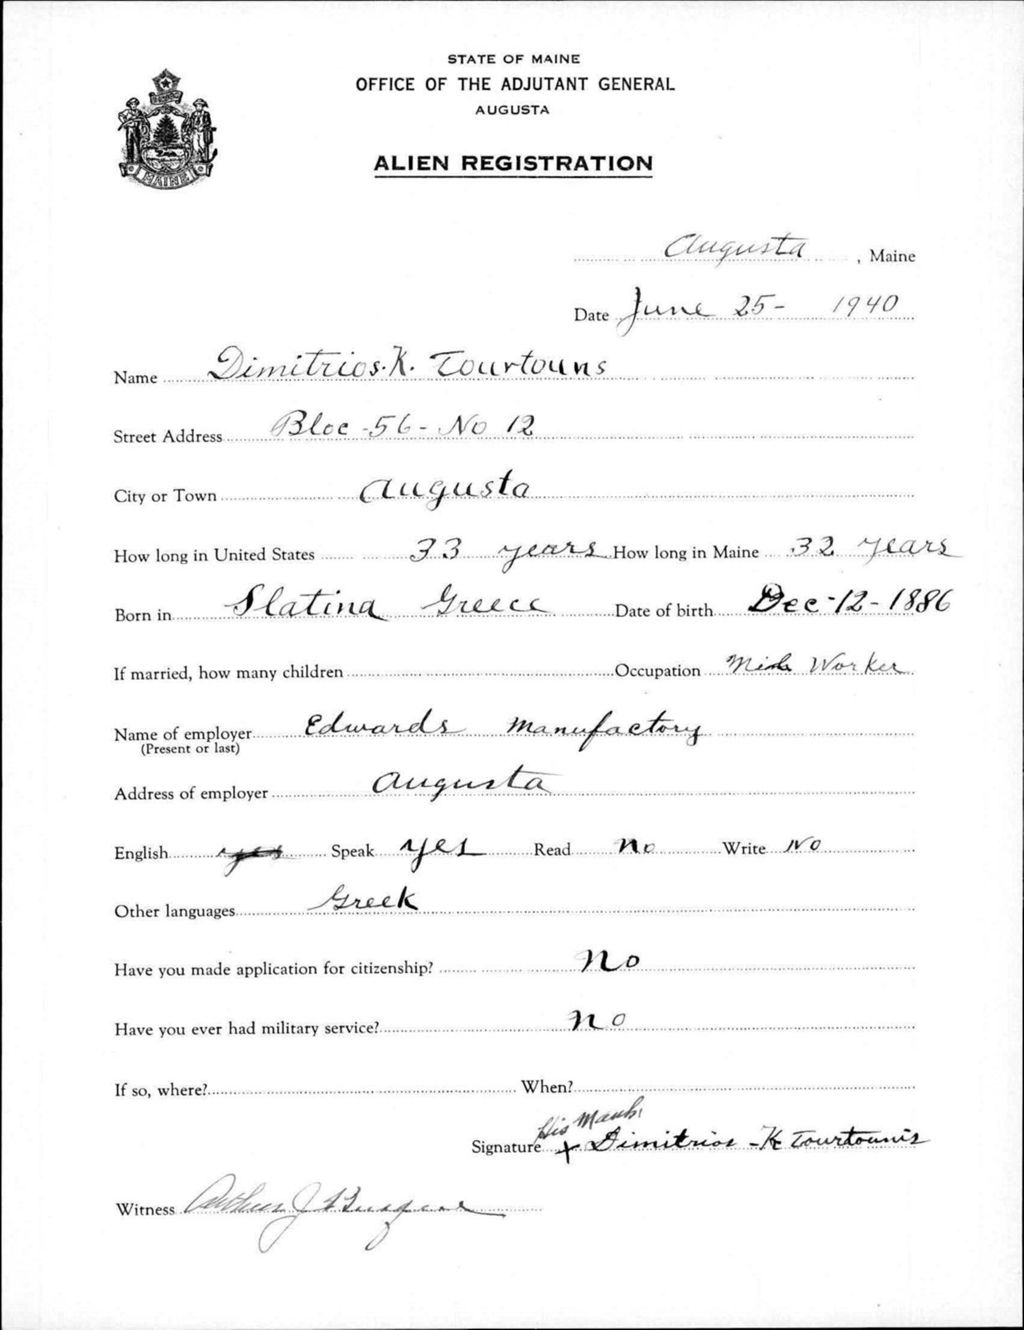 STATE OF MAINE
OFFICE OF THE ADJUTANT GENERAL
AUGUSTA
ALIEN REGISTRATION
MAINE
Augusta, Maine
Date June 25- 1940
Name Dimitrios. K. Tourtouns
Street Address Bloc -56- No 12
City or Town Augusta
How long in United States 33 years How long in Maine 32 years
Born in Slatina Greece Date of birth Dec-12-1886
If married, how many children Occupation Worker
Name of employer Edwards Manufactory
(Present or last)
Address of employer Augusta
English yes Speak yes Read no Write No
Other languages Greek
Have you made application for citizenship? No
Have you ever had military service? no
If so, where? When?
His Mark
Signature x Dimitrios -K Tourtounis
Witness Arthur J